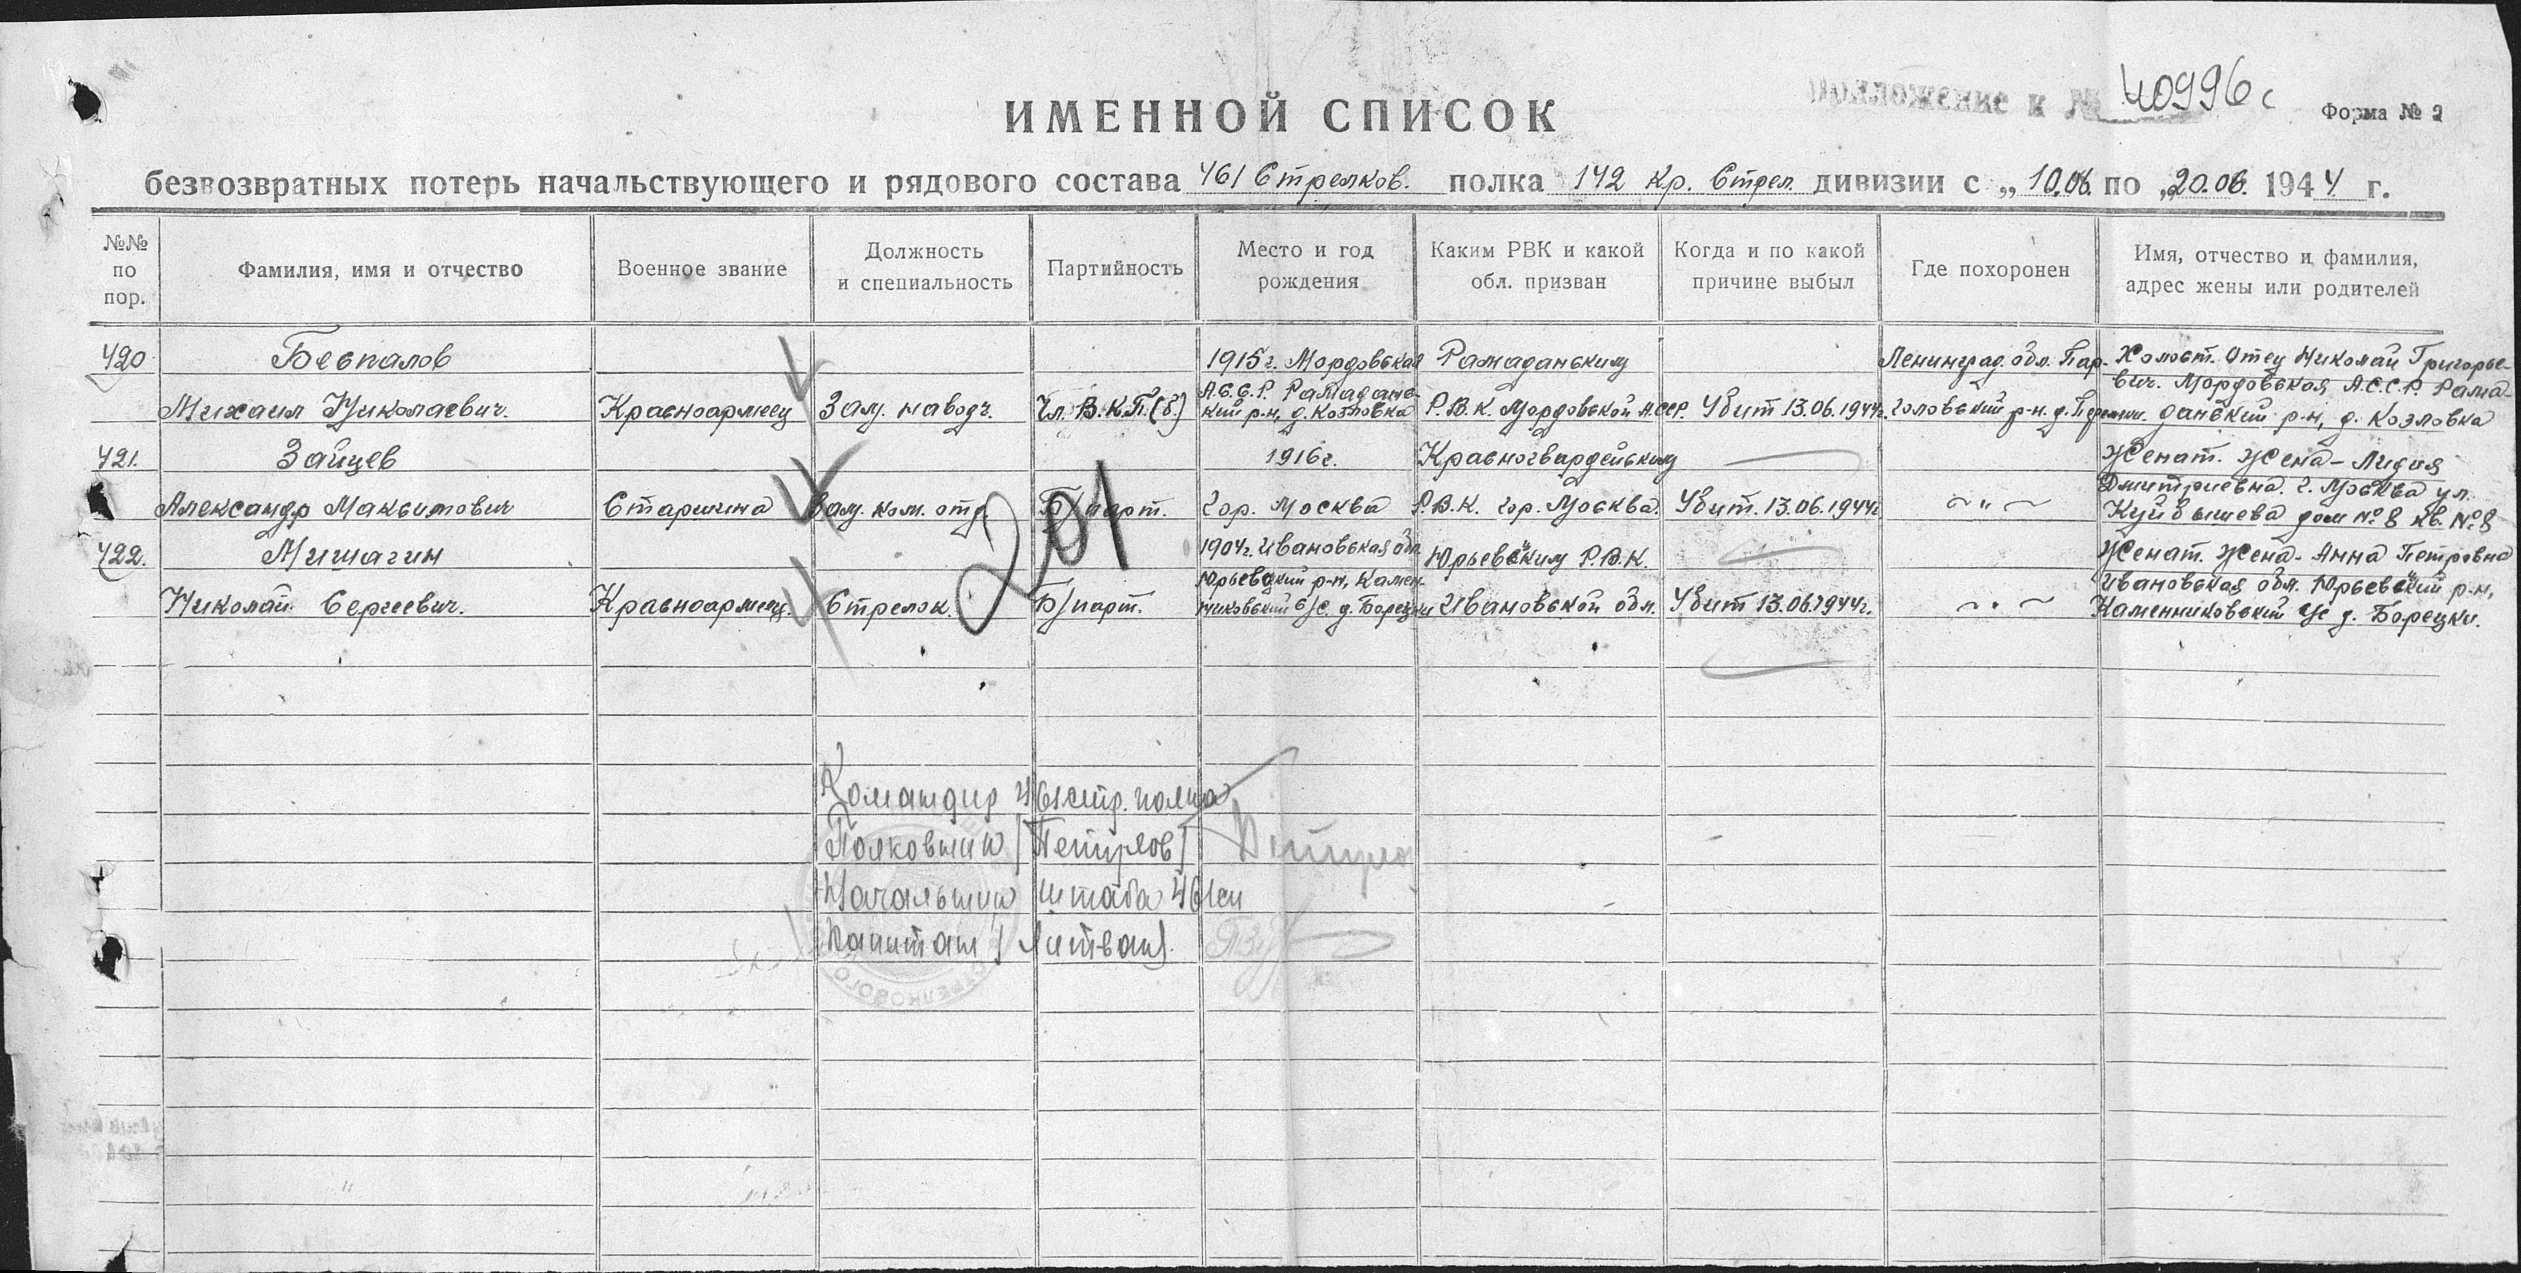 Приложение к № 40996с
Форма № 2
ИМЕННОЙ СПИСОК
безвозвратных потерь начальствующего и рядового состава 461 Стрелков. полка 142 Кр. Стрел. дивизии с „10.06. по „20.06. 1944 г.
№№ по пор.
Фамилия, имя и отчество
Военное звание
Должность и специальность
Партийность
Место и год рождения
Каким РВК и какой обл. призван
Когда и по какой причине выбыл
Где похоронен
Имя, отчество и фамилия, адрес жены или родителей
420
Беспалов
Михаил Николаевич.
Красноармеец
Зам. наводч.
Чл. В.К.П.(б.)
1915 г. Мордовская
А.С.С.Р. Ромаданов-
кий р-н, д. Козловка
Ромаданским
Р.В.К. Мордовской АССР.
Убит 13.06.1944г.
Ленинград. обл. Пар-
головский р-н. д.
Холост. Отец Николай Григорье-
вич. Мордовская А.С.С.Р. Рома-
данский р-н, д. Козловка
421.
Зайцев
Александр Максимович
Старшина
Зам. ком. отд.
Б/парт.
1916г.
Гор. Москва
Красногвардейским
Р.В.К. гор. Москва.
Убит. 13.06.1944г
~ " ~
Женат. Жена - Лидия
Дмитриевна. г. Москва ул.
Куйбышева дом № 8 кв. № 8
422.
Мишагин
Николай Сергеевич.
Красноармеец.
Стрелок.
Б/парт.
1904г. Ивановская обл.
Юрьевский р-н, Камен-
никовский с/с. д. Борецки
Юрьевским Р.В.К.
Ивановской обл.
Убит 13.06.1944г.
~ " ~
Женат. Жена - Анна Петровна
Ивановская обл. Юрьевский р-н,
Каменниковский с/с д. Борецки.
201
Командир 461 стр. полка
Полковник /Петров/
Начальник штаба 461 сп
Капитан /Литван/.